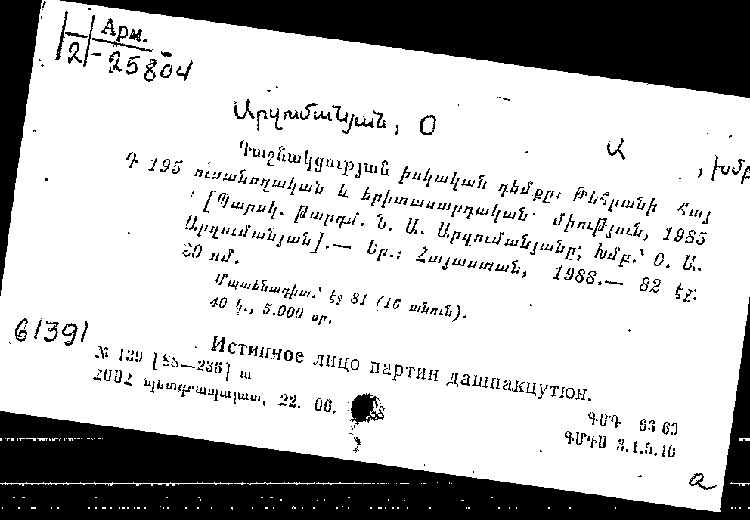 Арм.
2-25804
Արզումանյան, Օ Ա , խմբ
Դաշնակցության իսկական դեմքը: Թեհրանի Հայ
Դ 195 ուսանողական և երիտասարդական միություն, 1985
[Պարսկ. թարգմ. Ն. Ա. Արզումանյանը; Խմբ.՝ Օ. Ա.
Արզումանյան].— Եր.: Հայաստան, 1988.— 82 էջ:
20 սմ.
Մատենագիտ.՝ էջ 81 (16 անուն).
40 կ., 5.000 օր.
61391
Истинное лицо партии дашнакцутюн.
№ 139 [88—236] ա
ՀՍՍՀ պետգրապալատ, 22. 06.
ԳՄԴ 63 63
ԳՄԴՍ 3.1.5.10
a